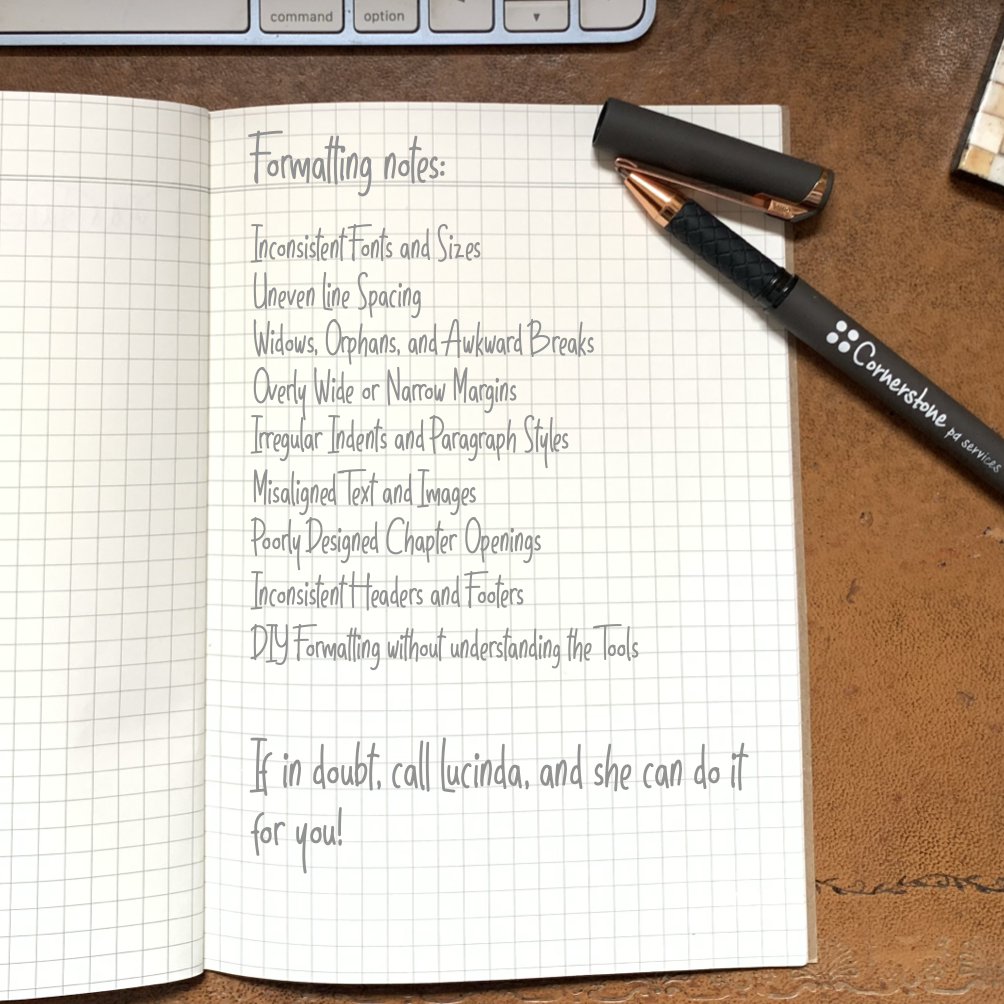 command
option
Formatting notes:
Inconsistent Fonts and Sizes
Uneven Line Spacing
Widows, Orphans, and Awkward Breaks
Overly Wide or Narrow Margins
Irregular Indents and Paragraph Styles
Misaligned Text and Images
Poorly Designed Chapter Openings
Inconsistent Headers and Footers
DIY Formatting without understanding the Tools
If in doubt, call Lucinda, and she can do it
for you!
Cornerstone pa services